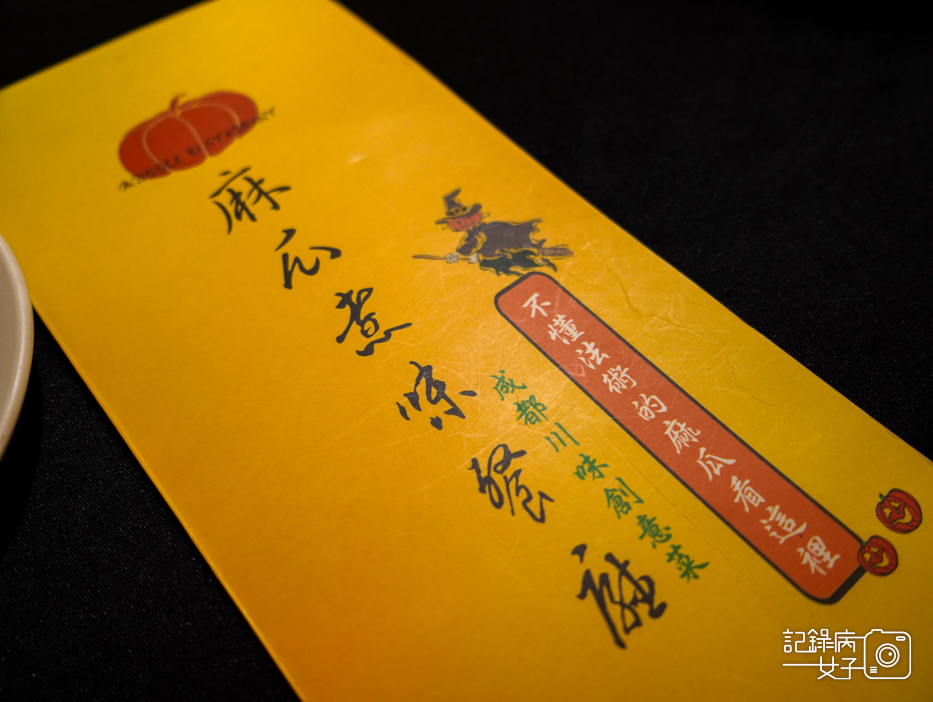 麻瓜煮味餐廳
成都川味創意菜
不懂法術的麻瓜看這裡
記錄病
女子